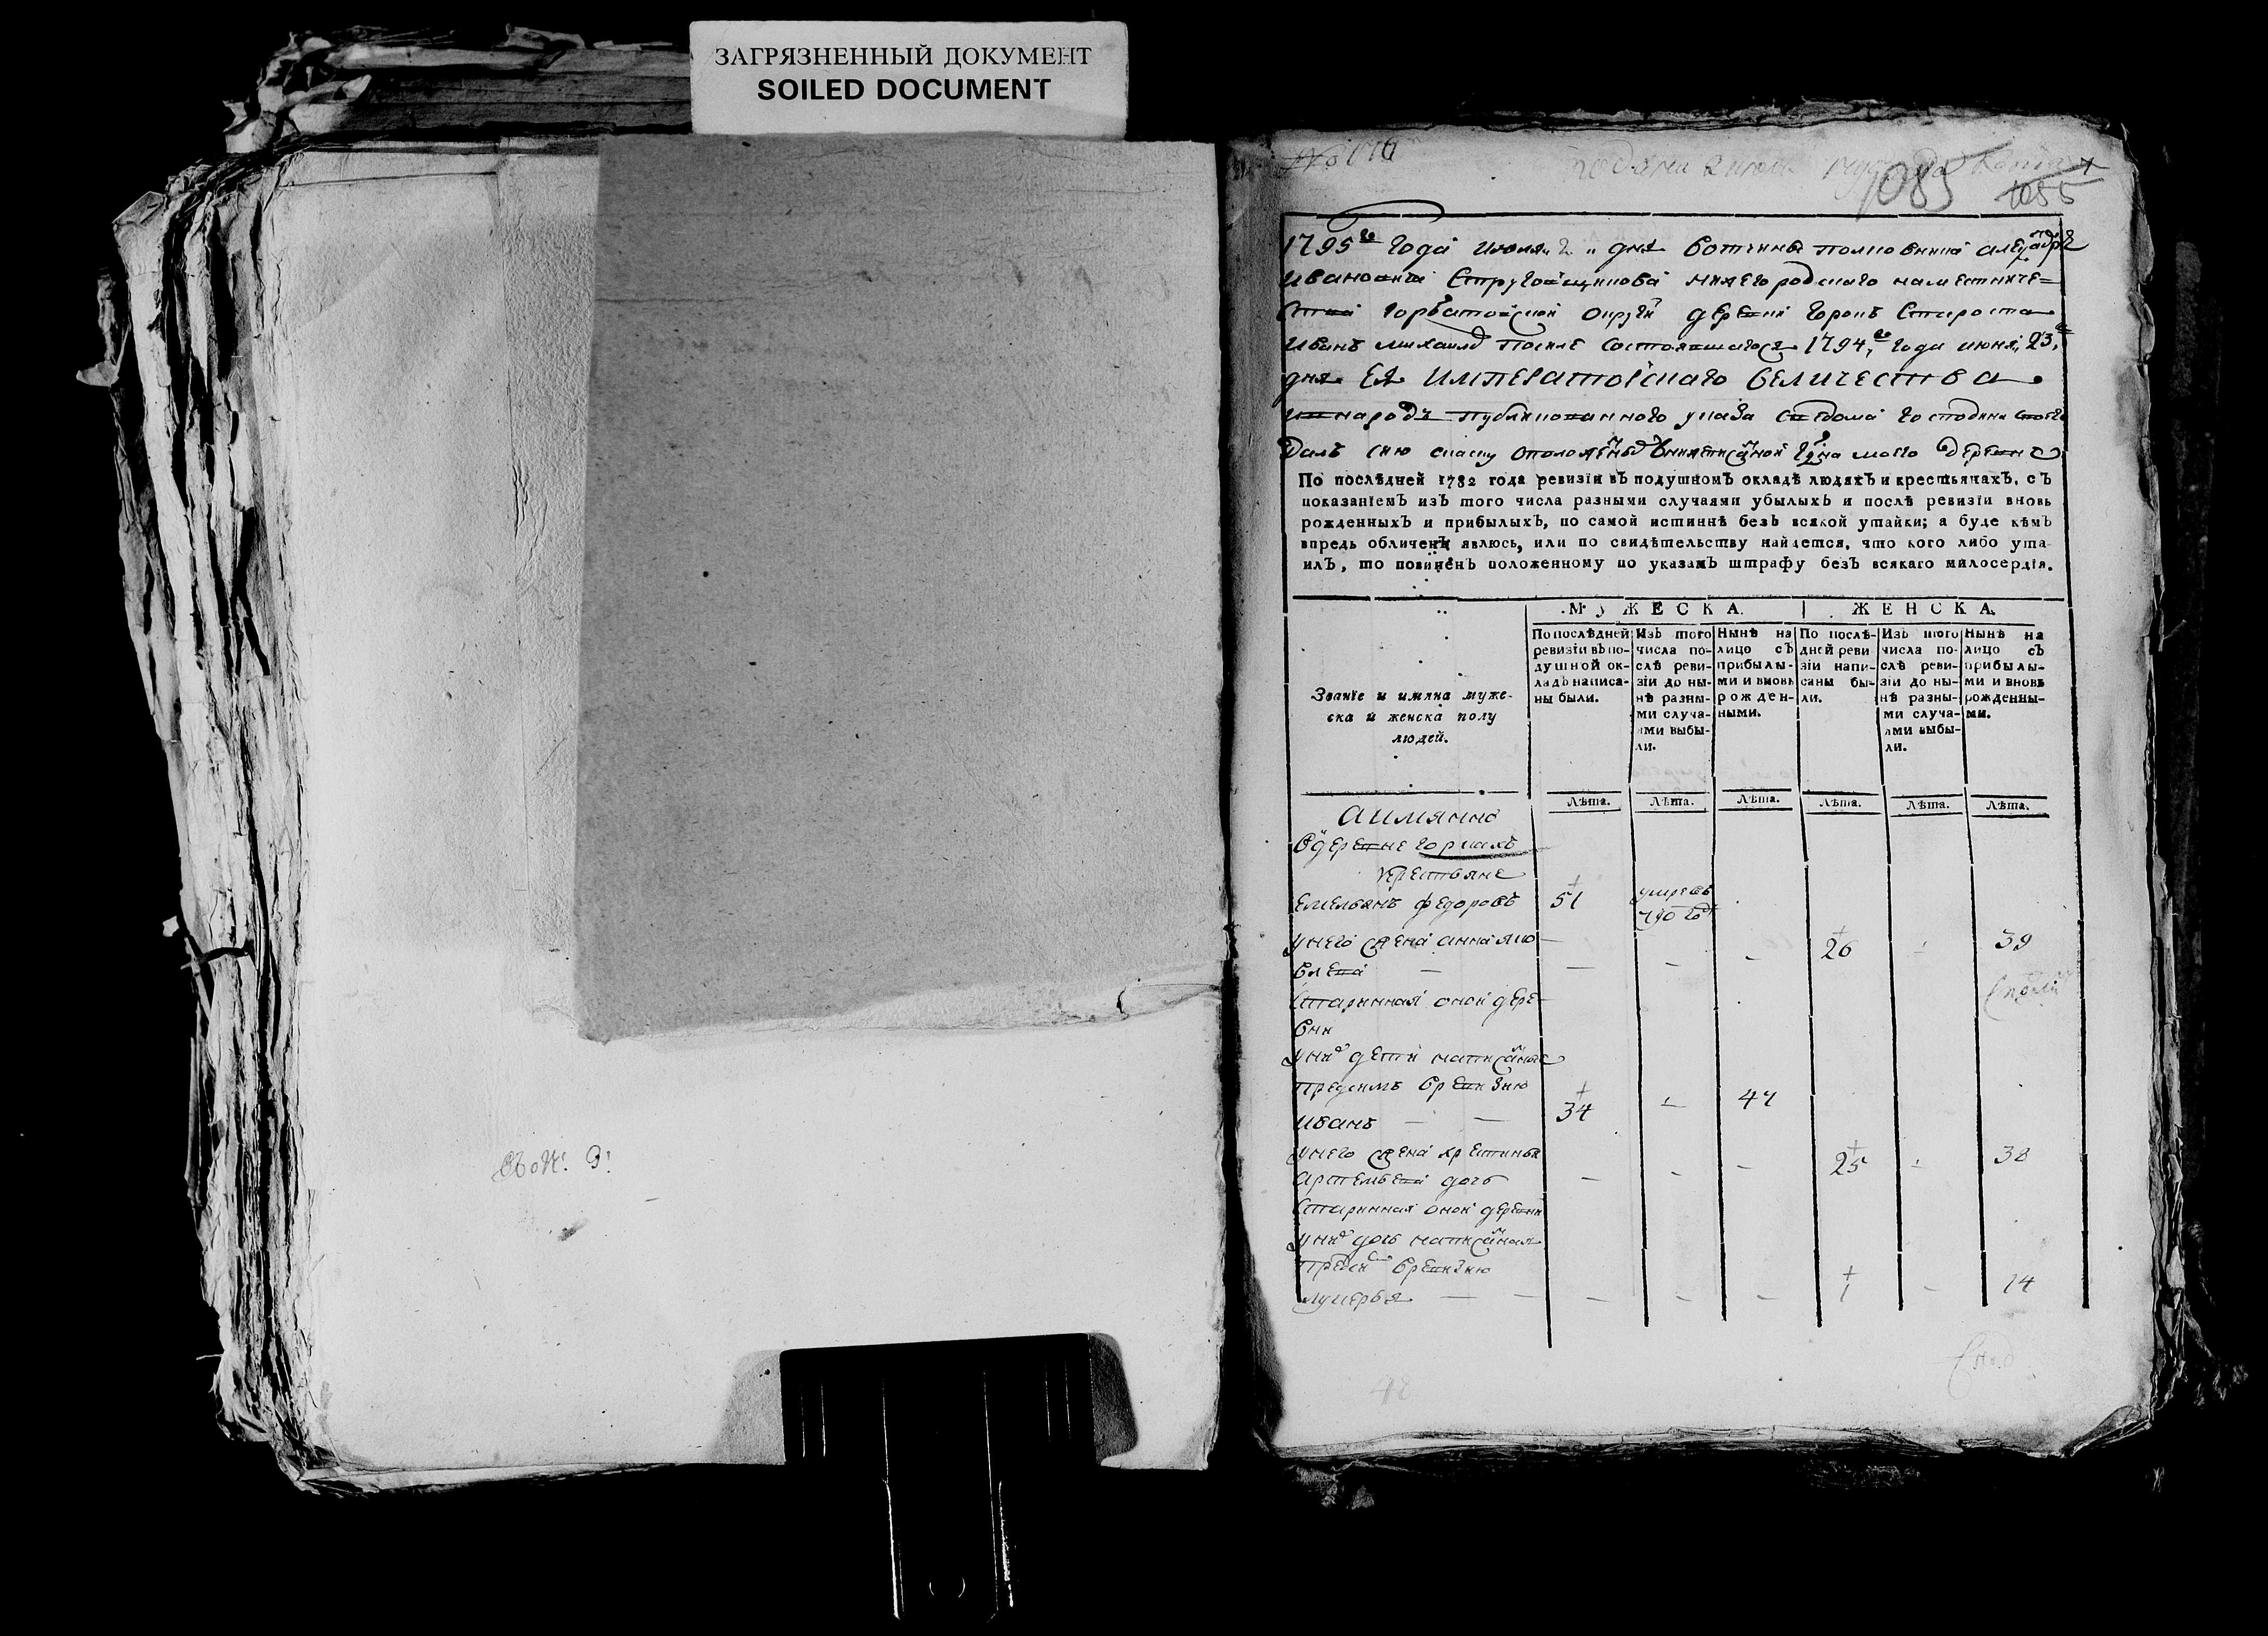 ЗАГРЯЗНЕННЫЙ ДОКУМЕНТ
SOILED DOCUMENT
1085
1055
1795го года июля 2 дня вотчины
Ивановича Стругавщикова нижегородскаго наместниче=
ства горбатовской округи деревни староста
Иванъ михаиловъ после состоявшагося 1794го года июня 23го
дня ЕЯ ИМПЕРАТОРСКАГО ВЕЛИЧЕСТВА
въ народъ публикованного указа с ведома господина своего
далъ сию скаску о положенныхъ деревне
По послѣдней 1782 года ревизіи въ подушномъ окладѣ людяхъ и крестьянахъ, съ
показаніемъ изъ того числа разными случаями убылыхъ и послѣ ревизіи вновь
рожденныхъ и прибылыхъ, по самой истиннѣ безъ всякой утайки; а буде кѣмъ
впредь обличенъ явлюсь, или по свидѣтельству найдется, что кого либо ута
илъ, то повиненъ положенному по указамъ штрафу безъ всякаго милосердія.
МУЖЕСКА. ЖЕНСКА.
Званіе и имяна муже-
ска и женска полу
людей.
По послѣдней
ревизіи въ по-
душной ок-
ладъ написа-
ны были.
Изъ того
числа по-
слѣ реви-
зіи до ны-
нѣ разны-
ми случа-
ями выбы-
ли.
Нынѣ на
лицо съ
прибылы-
ми и вновь
рожден-
ными.
По послѣ-
дней реви
зіи напи-
саны бы-
ли.
Изъ того
числа по-
слѣ реви-
зіи до ны-
нѣ разны-
ми случа-
ями выбы-
ли.
Нынѣ на
лицо съ
прибылы-
ми и вновь
рожденны-
ми.
Лѣта. Лѣта. Лѣта. Лѣта. Лѣта. Лѣта.
А имянно
В деревне горнахъ
крестьяне
Емельянъ федоровъ 51 умре въ
790 годѣ
у него жена анна яко 26 39
влева
старинная оной дере
вни
у них дети написанные
пред симъ в ревизию
иванъ 34 47
у него жена хрестинья 25 38
артемьева дочь
старинная оной деревни
у них дочь написанная
пред сим в ревизию
лукерья 1 14